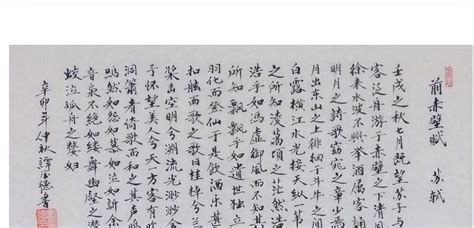 前赤壁賦 苏轼
壬戌之秋七月既望苏子与
客泛舟游于赤壁之下清風
徐来水波不興举酒属客誦
明月之詩歌窈窕之章少焉
月出东山之上徘徊于斗牛之间
白露横江水光接天纵一苇
之所如凌萬顷之茫然浩
浩乎如馮虚御風而不知其
所止飄飄乎如遺世独立
羽化而登仙于是飲酒樂甚
扣舷而歌之歌曰桂棹兮兰
桨击空明兮溯流光渺渺兮
予怀望美人兮天方客有吹
洞箫者倚歌而和之其声鸣
鸣然如怨如慕如泣如訴余
音裊不絕如缕舞幽壑之潜
蛟泣孤舟之嫠妇
辛卯年仲秋譚德書